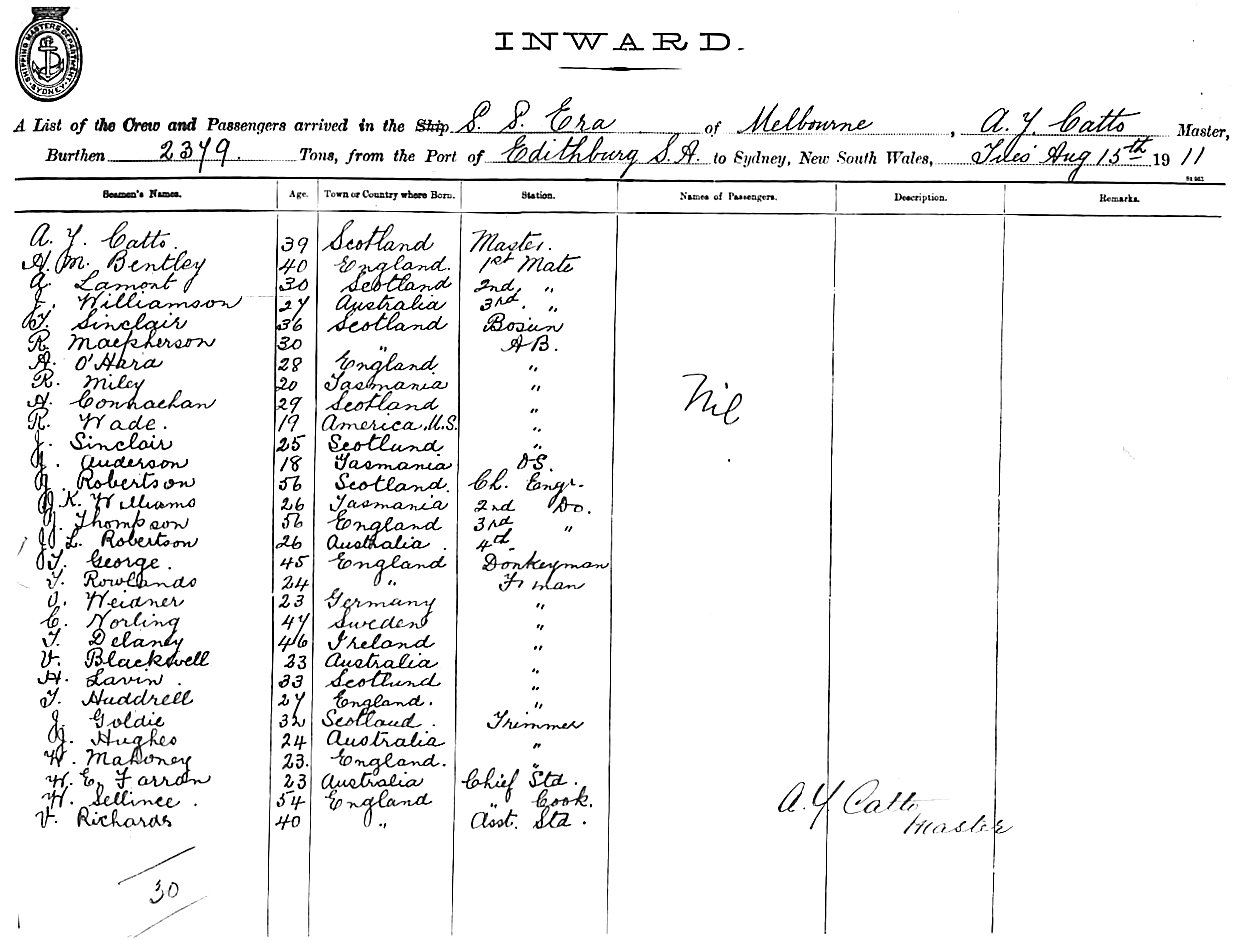 SHIPPING MASTERS DEPARTMENT SYDNEY
INWARD.
A List of the Crew and Passengers arrived in the Ship S. S. Era of Melbourne, A. Y. Catto Master,
Burthen 2379. Tons, from the Port of Edithburg S.A. to Sydney, New South Wales, Tues Aug 15th 1911
Seamen's Names. Age. Town or Country where Born. Station. Names of Passengers. Description. Remarks.
A. Y. Catto. 39 Scotland Master.
H. M. Bentley 40 England. 1st Mate
A. Lamont 30 Scotland 2nd. "
J. Williamson 27 Australia 3rd. "
T. Sinclair 36 Scotland Bosun
R. Macpherson 30 " A B.
A. O'Hara 28 England "
R. Miley 20 Tasmania "
Nil
A. Connachan 29 Scotland "
R. Wade. 19 America. U.S. "
J. Sinclair 25 Scotlund "
Anderson 18 Tasmania OS.
Robertson 56 Scotland. Ch. Engr.
K. Williams 26 Tasmania 2nd Do.
J. Thompson 56 England 3rd "
J L. Robertson 26 Australia. 4th
T. George. 45 England Donkeyman
T. Rowlands 24 " F'man
O. Weidner 23 Germany "
C. Norling 47 Sweden "
T. Delaney 46 Ireland "
V. Blackwell 23 Australia "
H. Lavin. 33 Scotlund "
T. Huddrell 27 England. "
J. Goldie 32 Scotland. Trimmer
J. Hughes 24 Australia "
W. Mahoney 23. England. "
W. E. Farran 23 Australia Chief Std.
W. Sellince. 54 England " Cook.
A. Y Catto
V. Richards 40 " Asst. Std.
Master
30